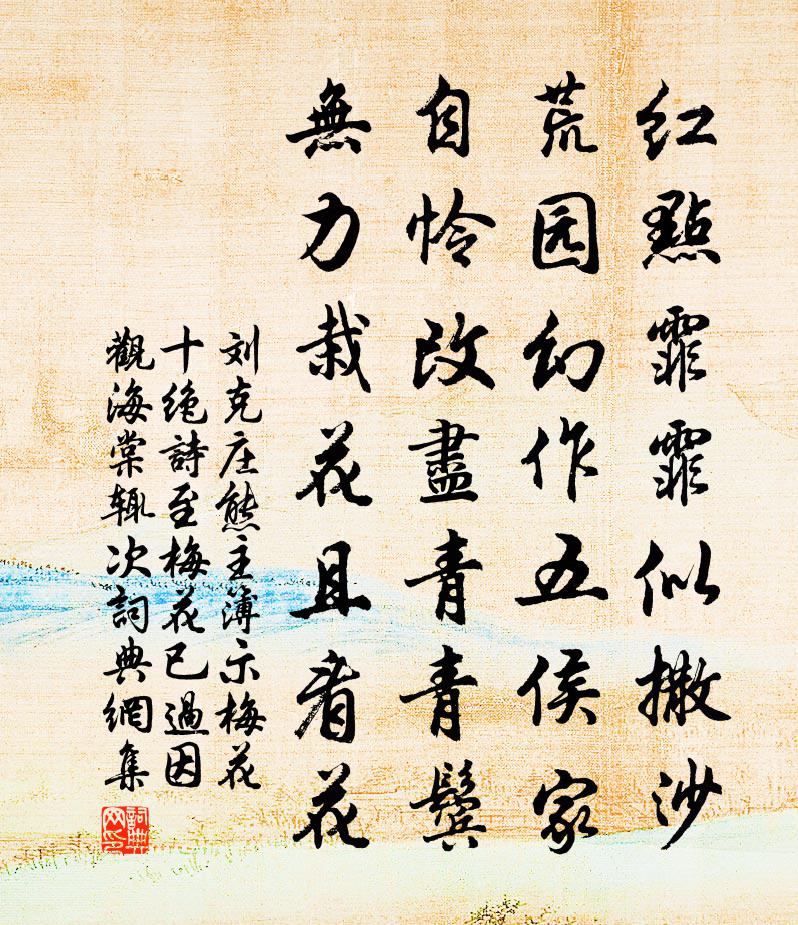 红點霏霏似撒沙
荒园幻作五侯家
自怜改盡青青鬓
無力栽花且看花
刘克庄熊主簿示梅花
十绝詩至梅花已過因
觀海棠辄次詞典網集